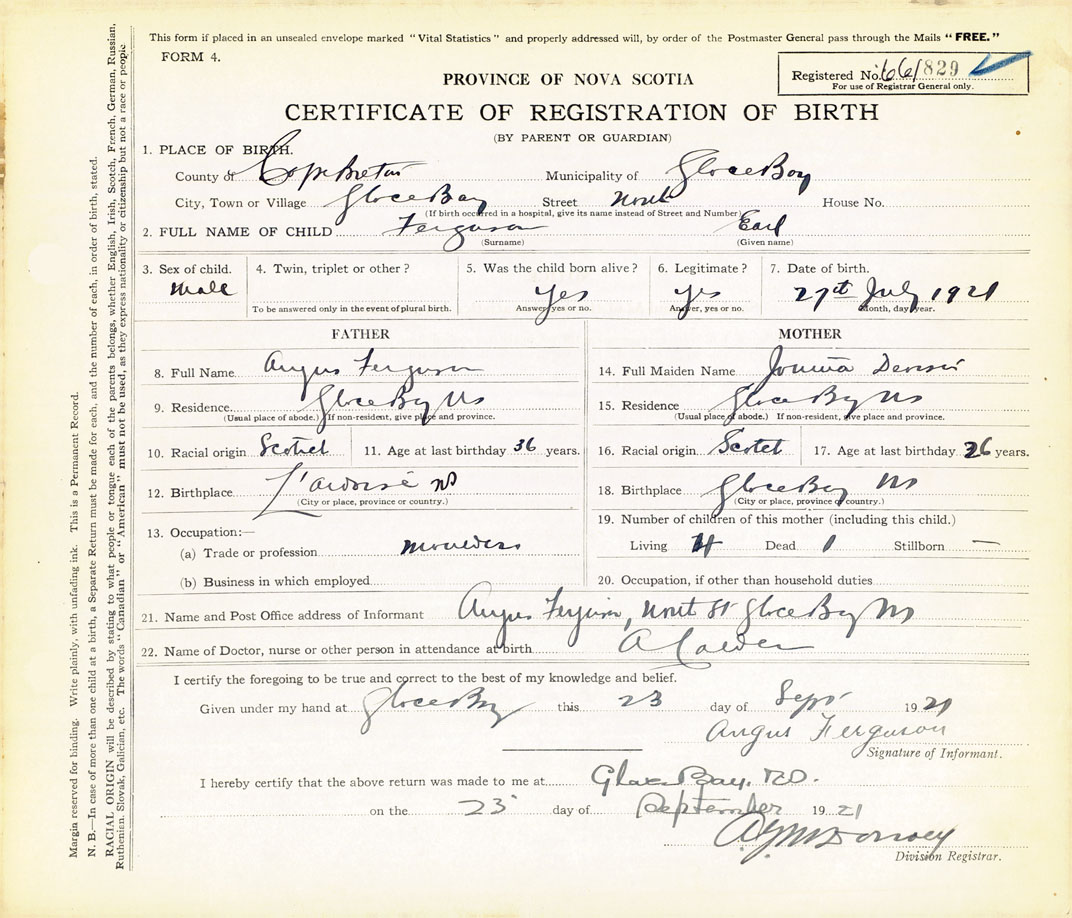 This form if placed in an unsealed envelope marked "Vital Statistics" and properly addressed will, by order of the Postmaster General pass through the Mails "FREE."
FORM 4.
Registered No. 661829
For use of Registrar General only.
PROVINCE OF NOVA SCOTIA
CERTIFICATE OF REGISTRATION OF BIRTH
(BY PARENT OR GUARDIAN)
1. PLACE OF BIRTH.
County of Cape Breton Municipality of Glace Bay
City, Town or Village Glace Bay Street House No.
(If birth occurred in a hospital, give its name instead of Street and Number)
2. FULL NAME OF CHILD Ferguson Earl
(Surname) (Given name)
3. Sex of child. 4. Twin, triplet or other? 5. Was the child born alive? 6. Legitimate? 7. Date of birth.
Male yes yes 27th July 1921
To be answered only in the event of plural birth. Answer yes or no. Answer, yes or no. Month, day, year.
FATHER
8. Full Name Angus Ferguson
9. Residence. Glace Bay NS
(Usual place of abode.) If non-resident, give place and province.
10. Racial origin Scotch 11. Age at last birthday 36 years.
12. Birthplace L'Ardoise NS
(City or place, province or country.)
13. Occupation:—
(a) Trade or profession
(b) Business in which employed
MOTHER
14. Full Maiden Name
15. Residence Glace Bay NS
(Usual place of abode.) If non-resident, give place and province.
16. Racial origin Scotch 17. Age at last birthday 26 years.
18. Birthplace Glace Bay NS
(City or place, province or country.)
19. Number of children of this mother (including this child.)
Living 4 Dead 1 Stillborn —
20. Occupation, if other than household duties
21. Name and Post Office address of Informant Angus Ferguson, St Glace Bay NS
22. Name of Doctor, nurse or other person in attendance at birth A Calder
I certify the foregoing to be true and correct to the best of my knowledge and belief.
Given under my hand at Glace Bay this 23 day of Sept 1921
Angus Ferguson
Signature of Informant.
I hereby certify that the above return was made to me at Glace Bay, N.S.
on the 23 day of September 1921
Division Registrar.
Margin reserved for binding. Write plainly, with unfading ink. This is a Permanent Record.
N. B.—In case of more than one child at a birth, a Separate Return must be made for each, and the number of each, in order of birth, stated.
RACIAL ORIGIN will be described by stating to what people or tongue each of the parents belongs, whether English, Irish, Scotch, French, German, Russian,
Ruthenian, Slovak, Galician, etc. The words "Canadian" or "American" must not be used, as they express nationality or citizenship but not a race or people